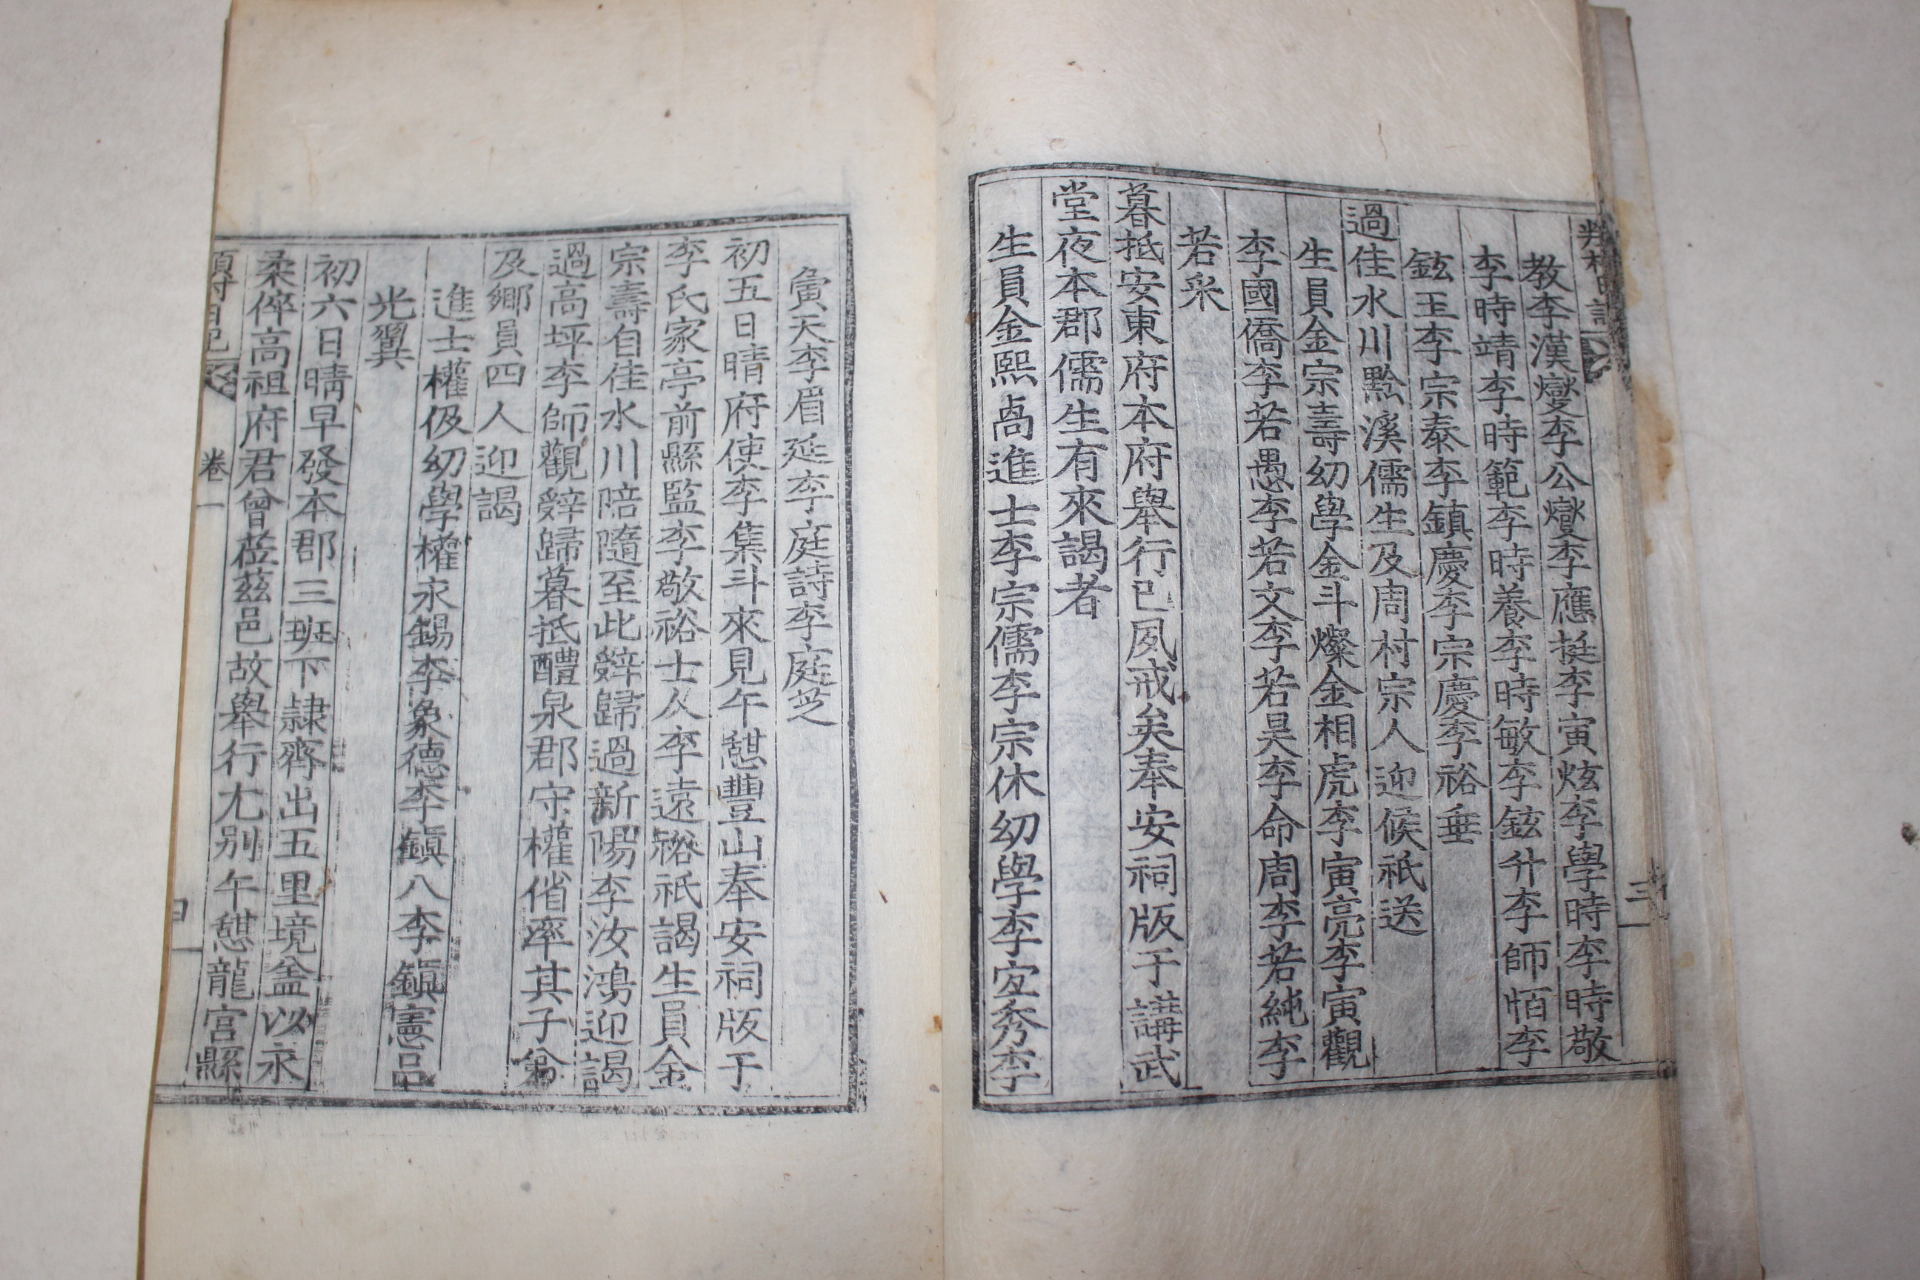 教李漢燮李公燮李應挺李寅炫李學時李時敬
李時靖李時範李時養李時敏李鉉升李師恒李
鉉玉李宗泰李鎮慶李宗慶李裕垂
過佳水川黔溪儒生及周村宗人迎候祇送
生員金宗壽幼學金斗燦金相虎李寅亮李寅觀
李國僑李若愚李若文李若昊李命周李若純李
若采
暮抵安東府本府舉行已夙戒矣奉安祠版于講武
堂夜本郡儒生有來謁者
生員金熙卨進士李宗儒李宗休幼學李宜秀李
寅天李眉延李庭詩李庭芝
初五日晴府使李集斗來見午憇豐山奉安祠版于
李氏家亭前縣監李敬裕士人李遠裕祇謁生員金
宗壽自佳水川陪隨至此辭歸過新陽李汝鴻迎謁
過高坪李師觀辭歸暮抵醴泉郡守權偗率其子
及鄉員四人迎謁
進士權伋幼學權永錫李象德李鎮八李鎮憲呂
光翼
初六日晴早發本郡三班下隷齊出五里境盆以永
柔倅高祖府君曾莅茲邑故舉行尤別午憇龍宮縣
卷一
三